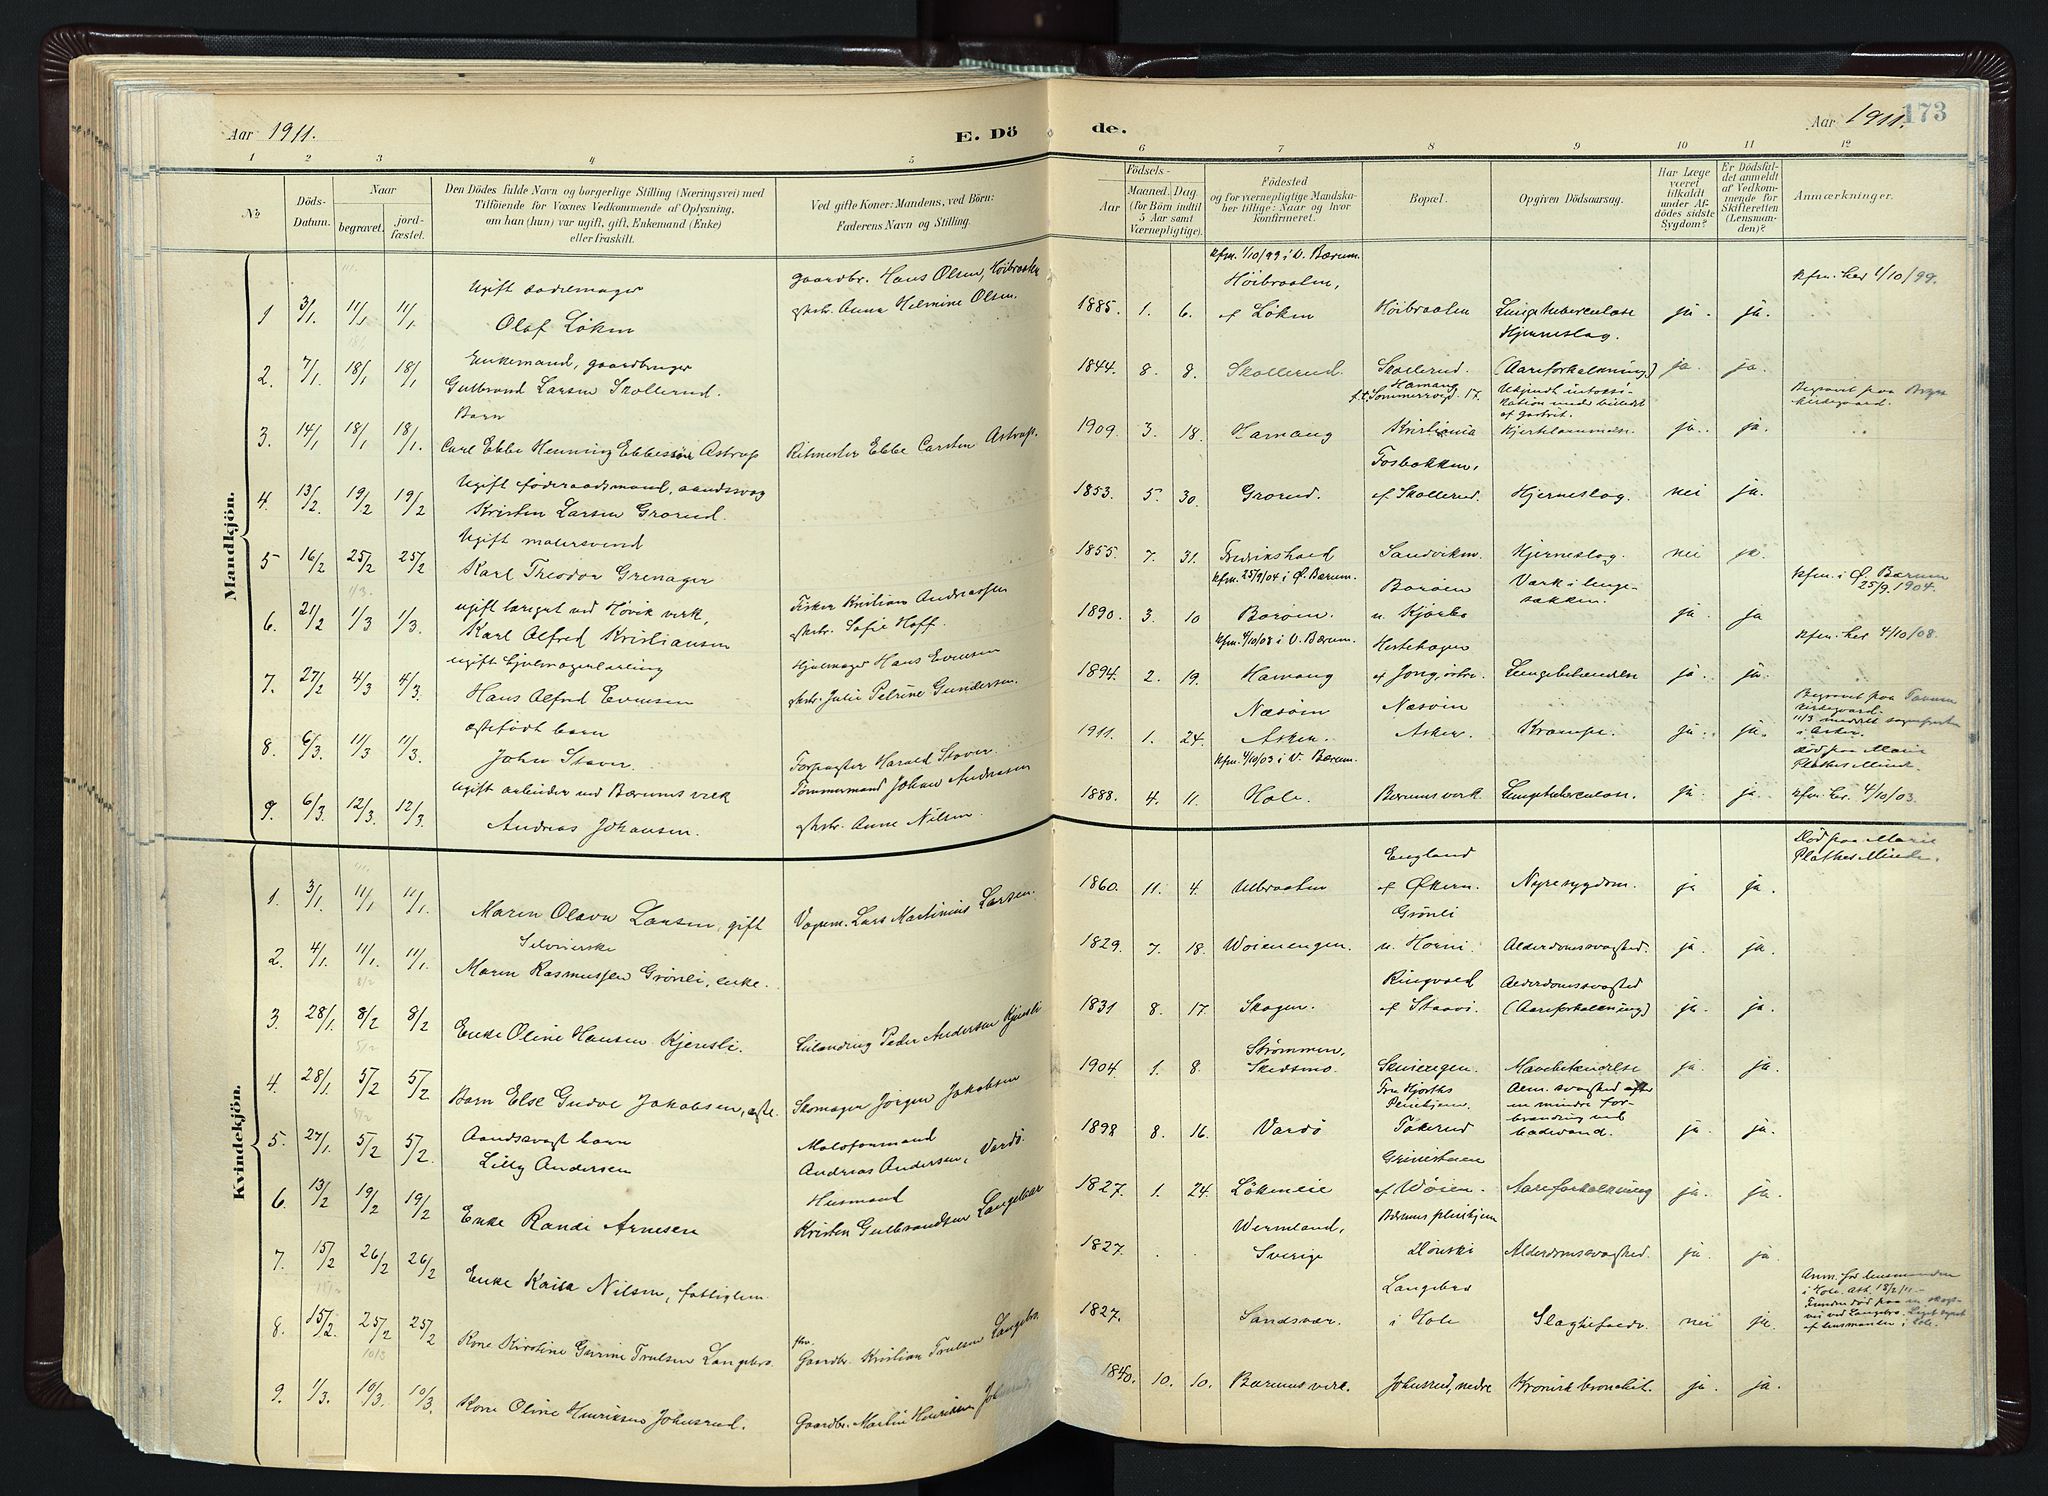 Aar 1911.
E. Dö
de.
Aar 1911.
173
1 2 3 4 5 6 7 8 9 10 11 12
No.
Döds-Datum.
Naar
begravet.
jord-fæstet.
Den Dödes fulde Navn og borgerlige Stilling (Næringsvei) med
Tilföiende for Voxnes Vedkommende af Oplysning,
om han (hun) var ugift, gift, Enkemand (Enke)
eller fraskilt.
Ved gifte Koner: Mandens, ved Börn:
Faderens Navn og Stilling.
Födsels-
Aar
Maaned. Dag.
(for Börn indtil
5 Aar samt
Værnepligtige).
Födested
og for værnepligtige Mandska-
ber tillige: Naar og hvor
konfirmeret.
Bopæl.
Opgiven Dödsaarsag.
Har Læge
været
tilkaldt
under Af-
dödes sidste
Sygdom?
Er Dödsfal-
det anmeldt
af Vedkom-
mende for
Skifteretten
(Lensman-
den)?
Anmærkninger.
Mandkjön.
kfm. 1/10/99 i V. Bærum.
kfm. her 1/10/99.
Ugift sadelmager
gaardbr. Hans Olsen, Höibraaten
Höibraaten,
1 3/1. 11/1 11/1 Olaf Löken
hstr. Anna Helmine Olsen. 1885. 1. 6. af Löken Höibraaten Lungetuberculose ja. ja.
Hjerneslag.
Enkemand, gaardbruger
2. 7/1. 18/1 18/1 Gulbrand Larsen Skollerud. 1844. 8. 8. Skollerud. Skollerud. (Aareforkalkning) ja. ja.
Hamang
f.t. Sommerrogt. 17.
Ukjendt intoksi-
kation under billedet
af gastrit.
Begravet paa
kirkegaard.
Barn
3. 14/1 18/1 18/1. Carl Ebbe Henning Ebbesön Astrup Ritmester Ebbe Carsten Astrup. 1909. 3. 18. Hamang Kristiania Hjertelammelse. ja. ja.
Fosbakken,
Ugift föderaadsmand, aandssvag
4. 13/2. 19/2 19/2 Kristen Larsen Grorud. 1853. 5. 30. Grorud. af Skollerud. Hjerneslag. nei ja.
Ugift malersvend
5 16/2 25/2 25/2 Karl Theodor Grenager 1855. 7. 31. Fredrikshald Sandviken Hjerneslag. nei ja.
kfm. 25/9/04 i Ø. Bærum.
kfm. i Ø. Bærum
25/9.1904.
Væsk i lunge-
sækken.
ugift læregut ved Hövik verk,
Fisker Kristian Andreassen
Boröen
6. 21/2 1/3 1/3. Karl Alfred Kristiansen hstr. Sofie Hoff. 1890. 3. 10 Boröen. u. Kjørbo ja ja
kfm. 4/10/08 i V. Bærum.
kfm. her 4/10/08.
ugift hjulmagerlærling
Hjulmager Hans Evensen
Hestehagen
7. 27/2 4/3 4/3. Hans Alfred Evensen hstr. Julie Petrine Gundersen. 1894. 2. 19. Hamang af Jong, östre Lungebetændelse ja. ja.
Næsöen Næsöen
Begravet paa Tanum
kirkegaard
11/3
i Asker.
ægtefödt barn
8. 6/3. 11/3 11/3. John Stover. Forpagter Harald Stover. 1911. 1. 24. Asker. Asker. Krampe. ja. ja.
kfm. 4/10/03 i V. Bærum.
Död paa Marie
Plathes Minde.
ugift arbeider ved Bærums verk
Tömmermand Johan Andresen
9. 6/3. 12/3. 12/3. Andreas Johansen. hstr. Anne Nilsen. 1888. 4. 11. Hole. Bærums verk Lungetuberculose. ja. ja. kfm. her 4/10/03.
Kvindekjön.
Död paa Marie
Plathes Minde.
England
1. 3/1. 11/1 11/1. Maren Olava Larsen, gift Vognm. Lars Martinius Larsen. 1860. 11. 4. Ulbraaten af Økern. Nyresygdom. ja ja.
Grönli
Selveierske
2. 4/1. 11/1. 11/1. Maren Rasmussen Grönli, enke. 1829. 7. 18. Wöienengen. u. Horni. Alderdomssvaghed. ja. ja.
Ringvold Alderdomssvaghed
3. 28/1 8/2 8/2 Enke Oline Hansen Kjensli. Leilending Peder Andersen Kjensli 1831 8. 17. Skogen. af Staavi. (Aareforkalkning) ja. ja.
Strömmen,
4. 28/1 5/2 5/2 Barn Else Gudve Jakobsen, ægte. Skomager Jörgen Jakobsen 1904. 1. 8. Skedsmo. Skuiengen. Mavebetændelse ja. ja.
Fru Hjorths
Pleiehjem.
Alm. svaghed efter
en mindre for-
brænding ved
badevand.
Aandssvagt barn
5. 27/1 5/2 5/2. Lilly Andersen Andreas Andersen, Vardö 1898 8. 16. Vardö Tokerud ja. ja.
Husmand
6. 13/2 19/2 19/2 Enke Randi Arnesen Kristen Gulbrandsen 1827. 1. 24. Lökeneie af Wöien. Aareforkalkning ja. ja.
Wermland, Bærums pleiehjem
7. 15/2 26/2 26/2 Enke Kaisa Nilsen, fattiglem. 1827. Sverige Dönski Alderdomssvaghed. ja. ja.
Langebro
Anm. for lensmanden
i Hole. Att. 18/2/11
8. 15/2. 25/2 25/2 Kone Kirstine Gurine Trulsen Langebro. fhv. Gaardbr. Kristian Trulsen Langebro. 1827. Sandsvær. i Hole Slagtilfælde. nei ja.
9. 1/3. 10/3. 10/3. Kone Oline Henriksen Johnsrud. Gaardbr. Martin Henriksen 1840. 10. 10. Bærums verk. Johnsrud, nedre Kronisk bronchit. ja. ja.